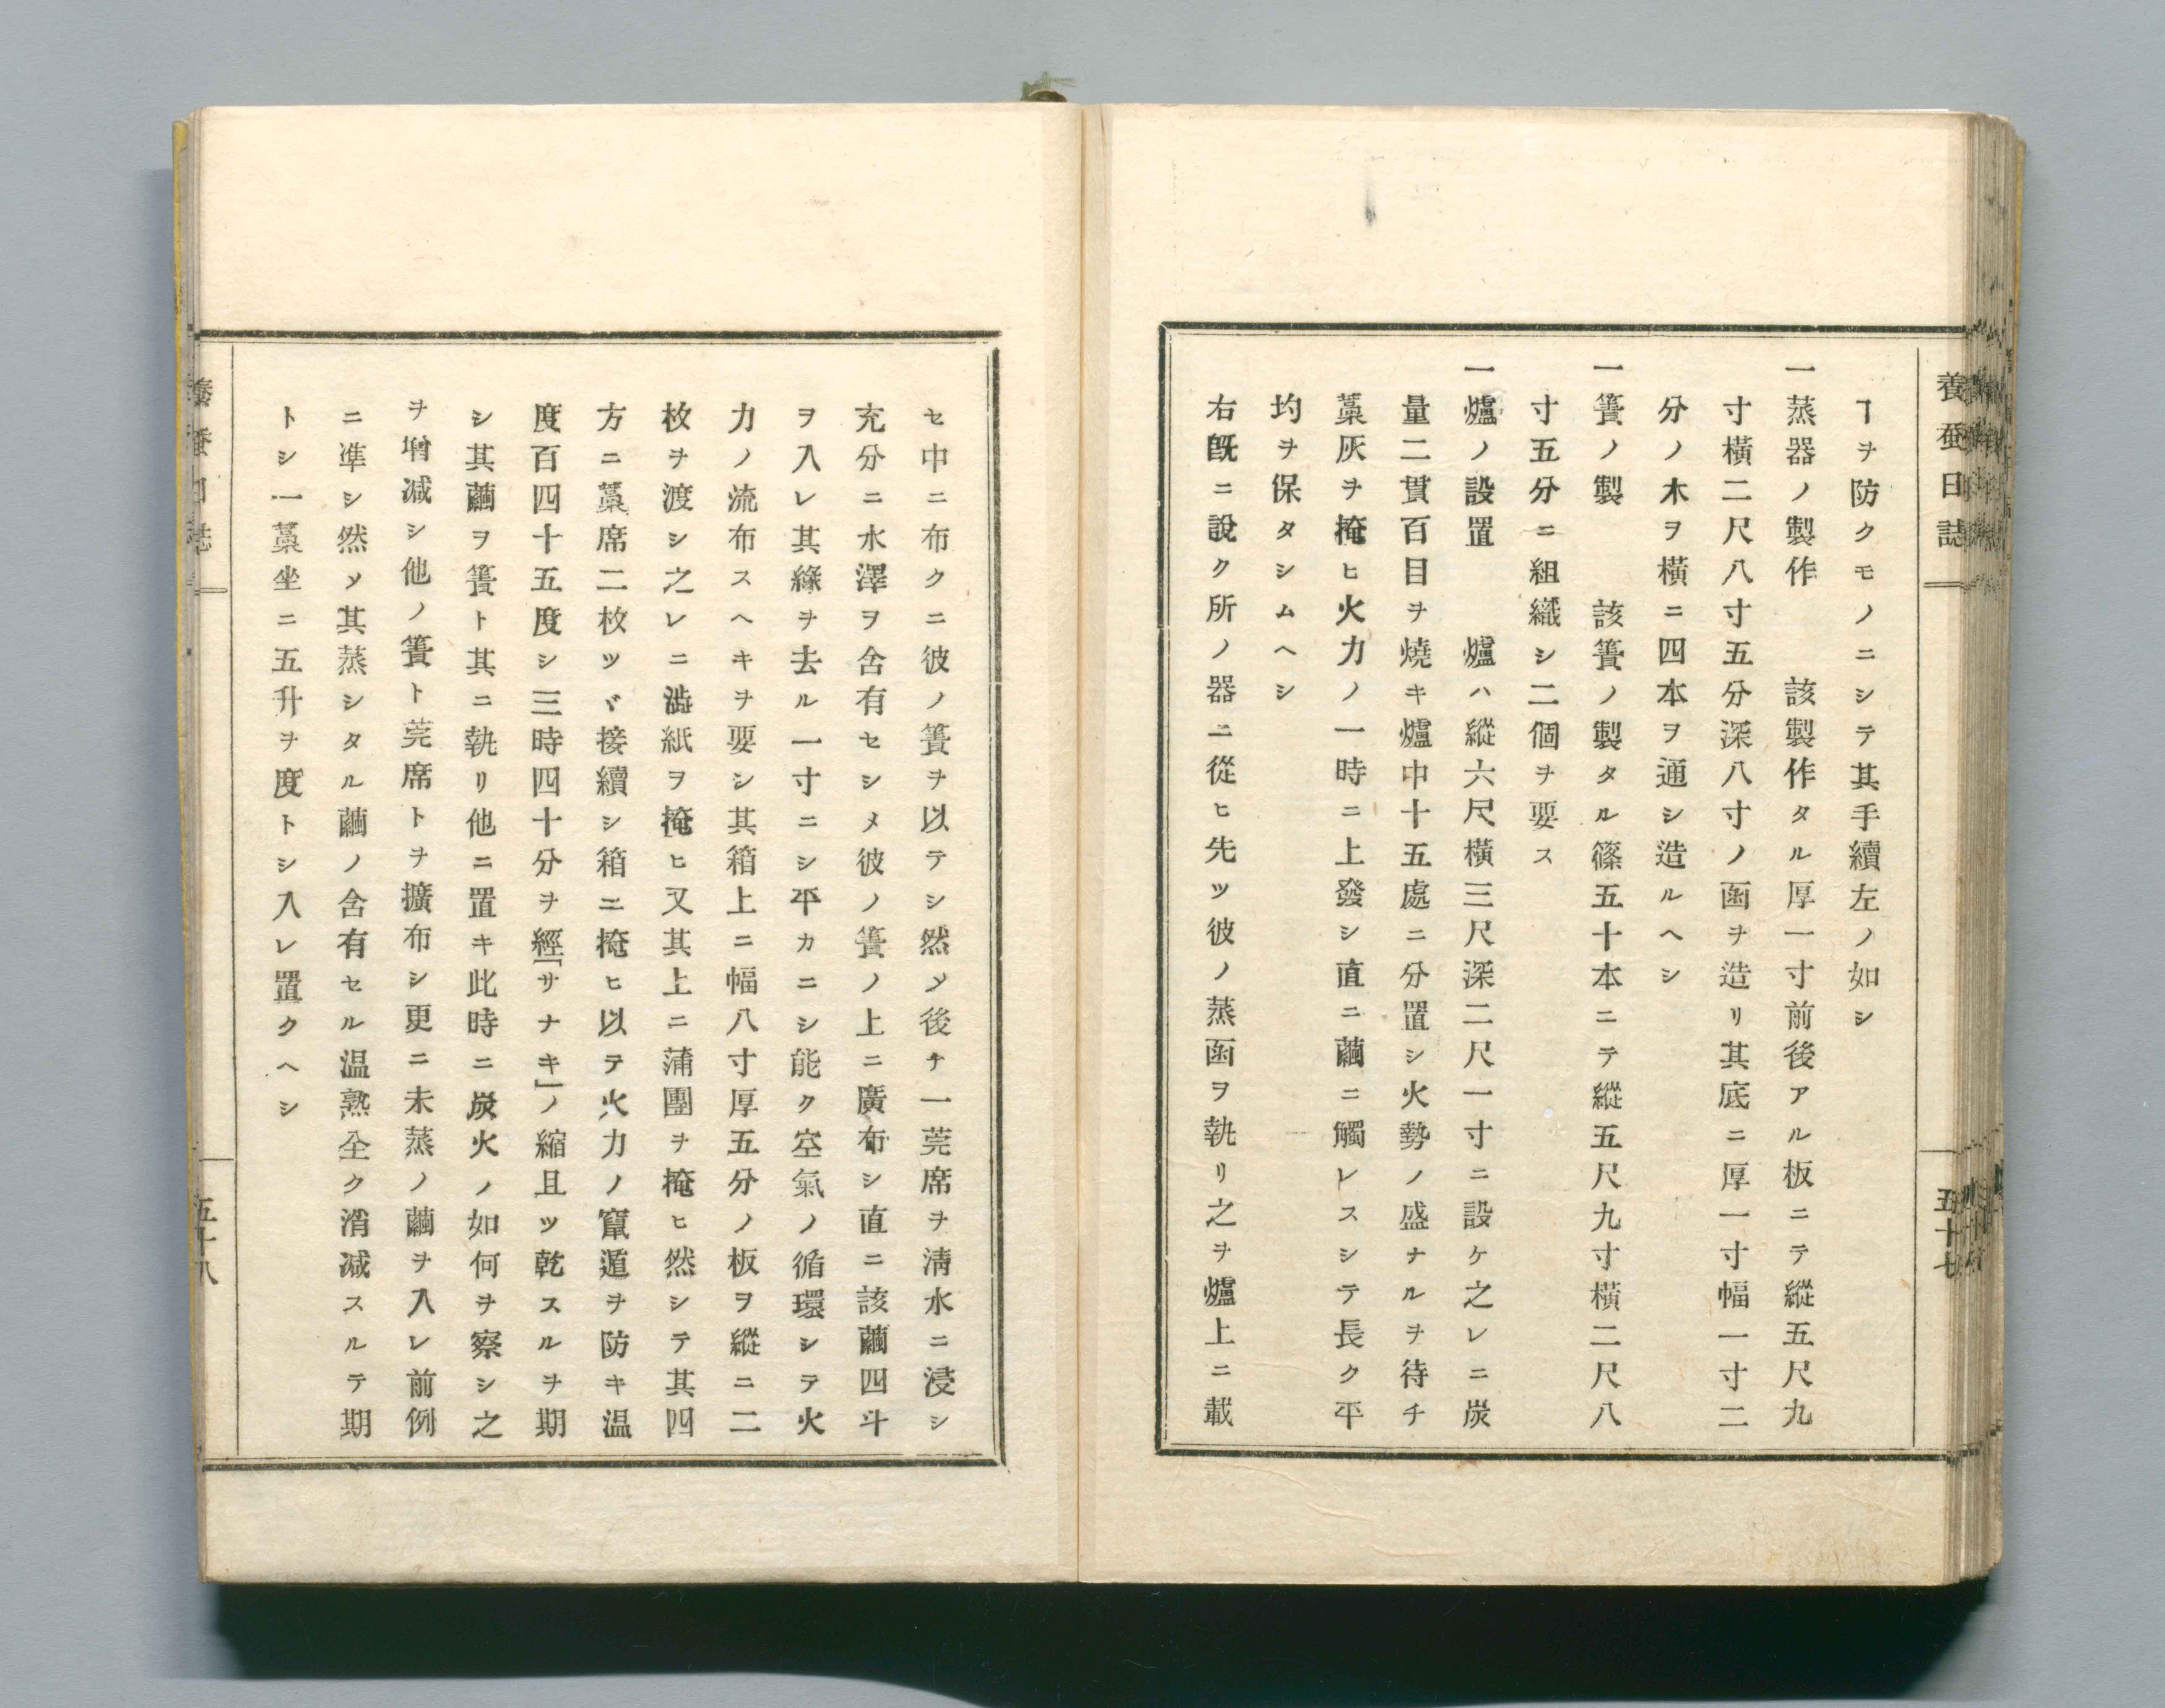 養蚕日誌
五十七
ヿヲ防クモノニシテ其手續左ノ如シ
一蒸器ノ製作　該製作タル厚一寸前後アル板ニテ縱五尺九
寸横二尺八寸五分深八寸ノ函ヲ造リ其底ニ厚一寸幅一寸二
分ノ木ヲ横ニ四本ヲ通シ造ルヘシ
一簀ノ製　該簀ノ製タル篠五十本ニテ縱五尺九寸横二尺八
寸五分ニ組織シ二個ヲ要ス
一爐ノ設置　爐ハ縱六尺横三尺深二尺一寸ニ設ケ之レニ炭
量二貫百目ヲ燒キ爐中十五處ニ分置シ火勢ノ盛ナルヲ待チ
藁灰ヲ掩ヒ火力ノ一時ニ上發シ直ニ繭ニ觸レスシテ長ク平
均ヲ保タシムヘシ
右既ニ説ク所ノ器ニ從ヒ先ツ彼ノ蒸函ヲ執リ之ヲ爐上ニ載
セ中ニ布クニ彼ノ簀ヲ以テシ然メ後チ一莞席ヲ淸水ニ浸シ
充分ニ水澤ヲ含有セシメ彼ノ簀ノ上ニ廣布シ直ニ該繭四斗
ヲ入レ其緣ヲ去ル一寸ニシ平カニシ能ク空氣ノ循環シテ火
力ノ流布スヘキヲ要シ其箱上ニ幅八寸厚五分ノ板ヲ縱ニ二
枚ヲ渡シ之レニ澁紙ヲ掩ヒ又其上ニ蒲團ヲ掩ヒ然シテ其四
方ニ藁席二枚ツヾ接續シ箱ニ掩ヒ以テ火力ノ竄遁ヲ防キ温
度百四十五度シ三時四十分ヲ經「サナキ」ノ縮且ツ乾スルヲ期
シ其繭ヲ簀ト其ニ執リ他ニ置キ此時ニ炭火ノ如何ヲ察シ之
ヲ增减シ他ノ簀ト莞席トヲ擴布シ更ニ未蒸ノ繭ヲ入レ前例
ニ準シ然ソ其蒸シタル繭ノ含有セル温熟全ク消减スルテ期
トシ一藁坐ニ五升ヲ度トシ入レ置クヘシ
養蚕日誌
五十八